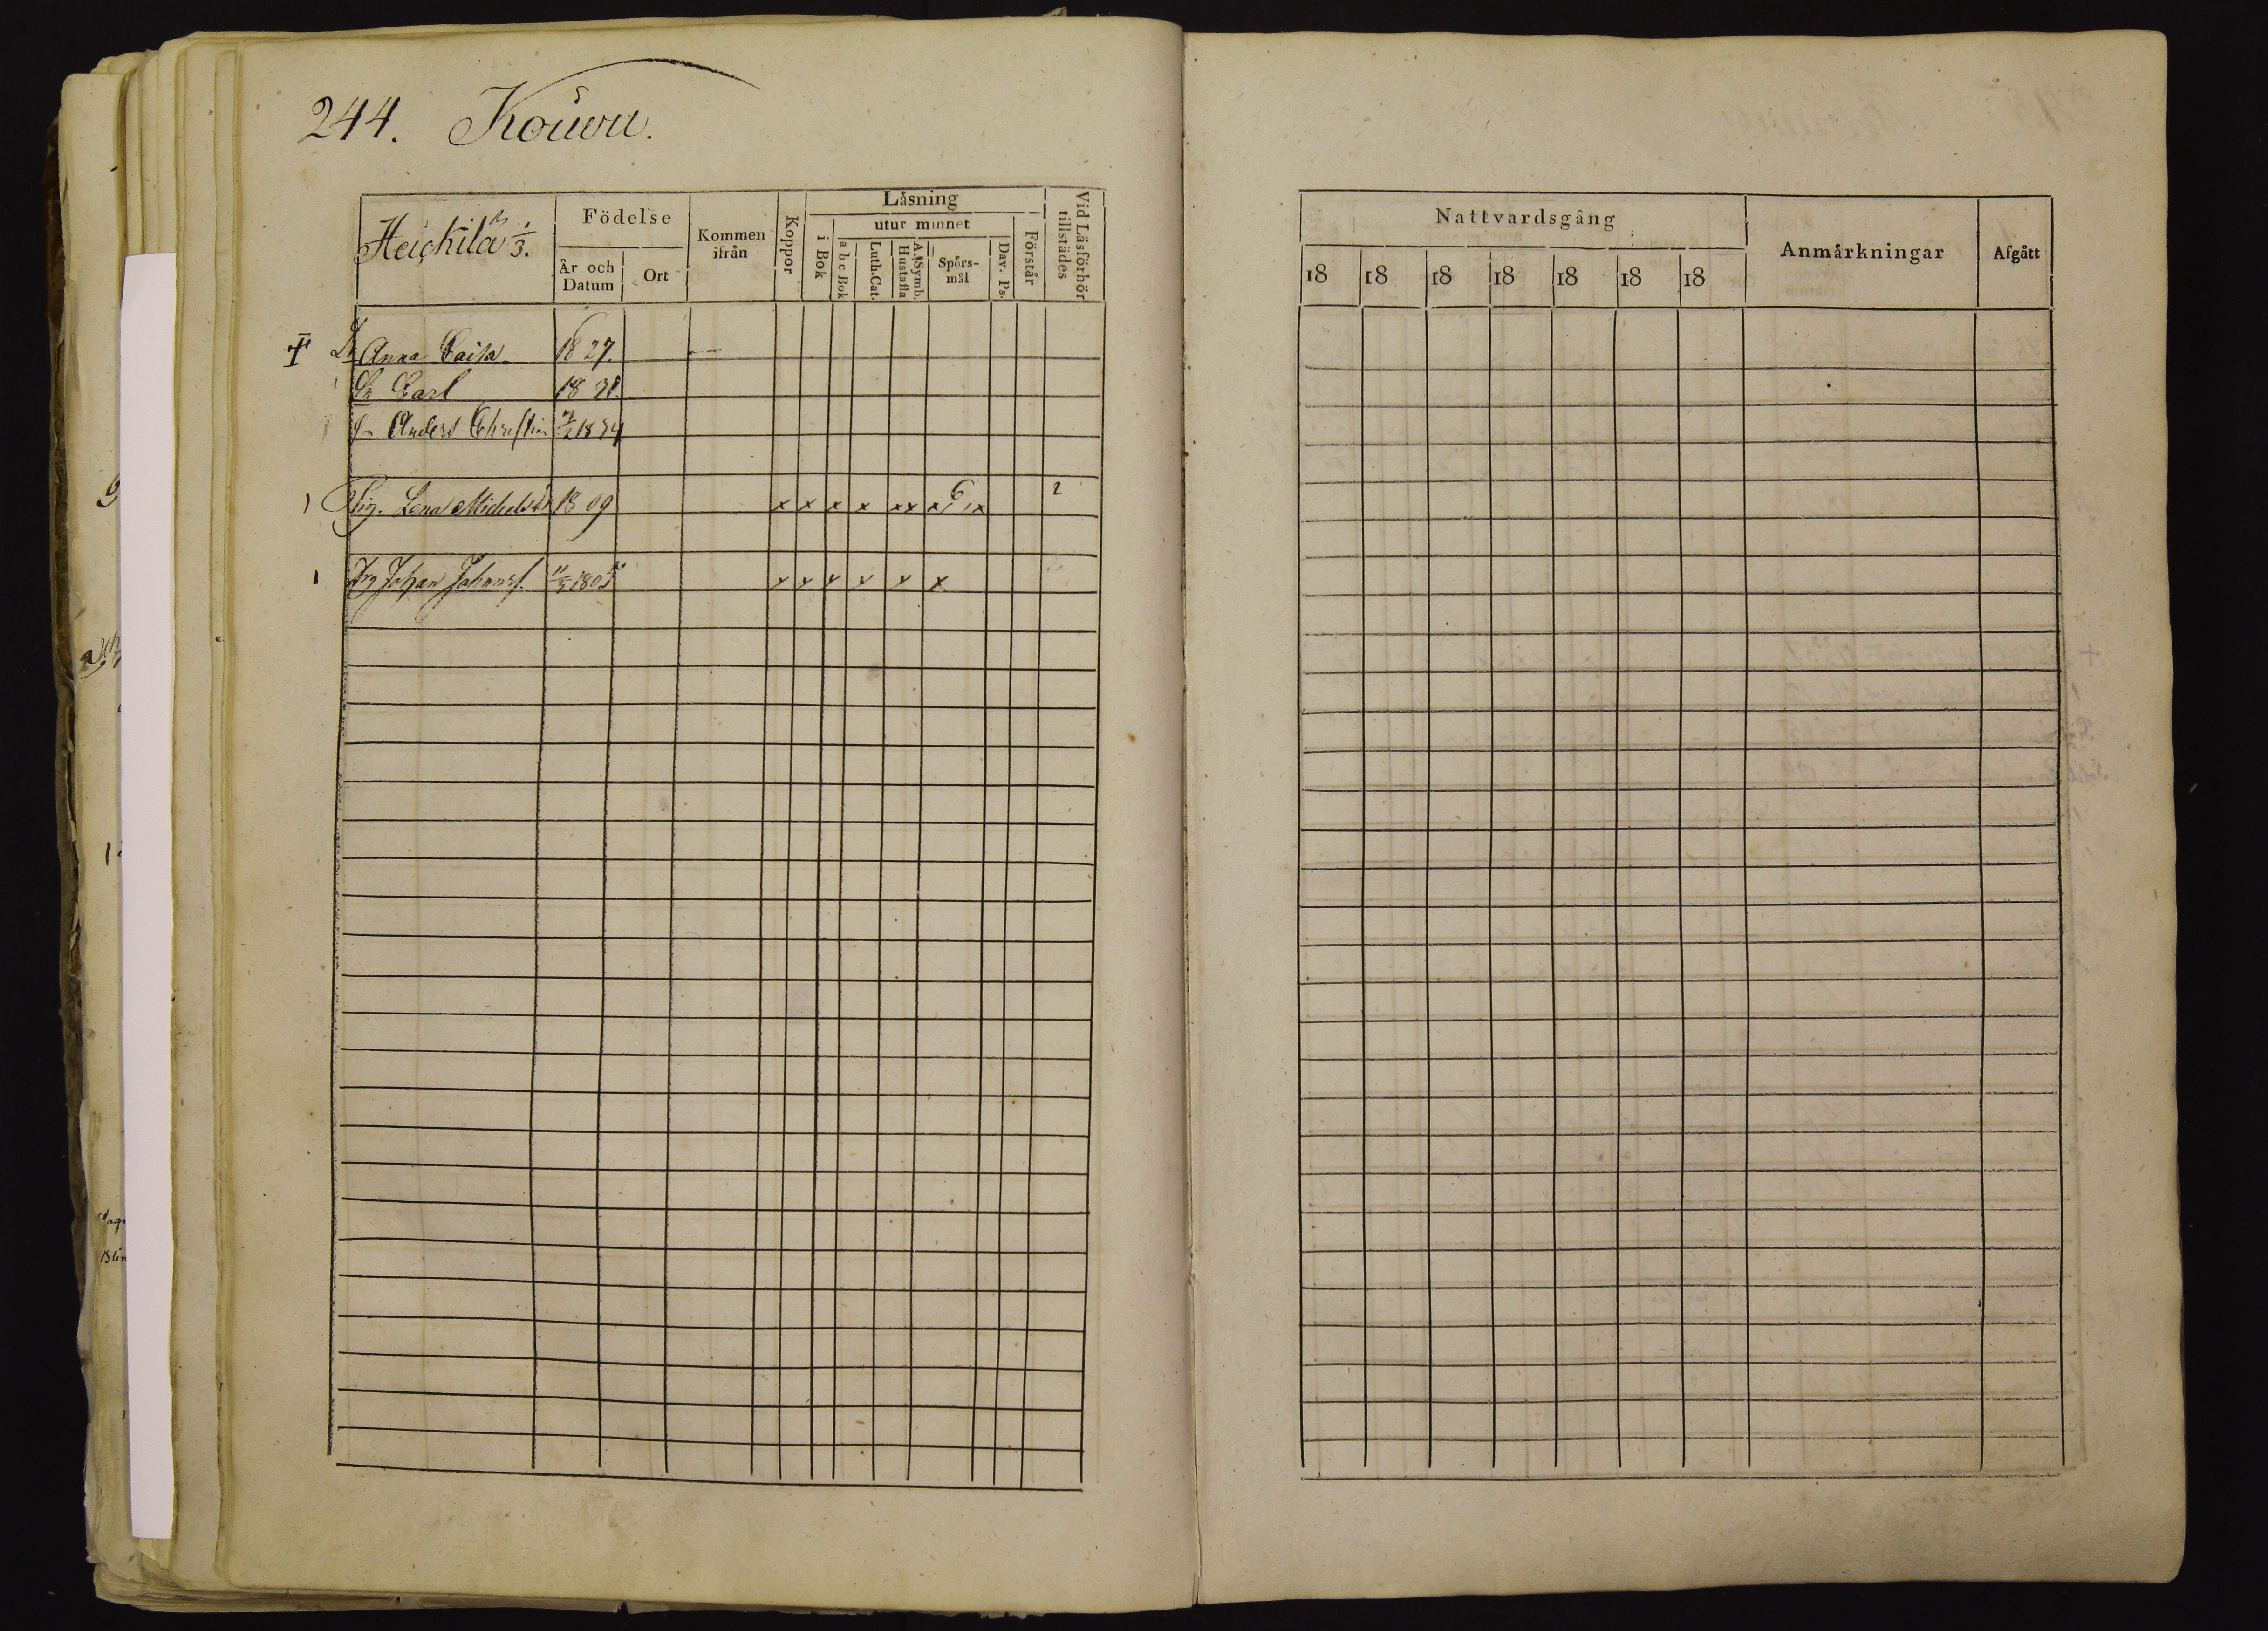 244. Kouvu.
Heickilä 1/3.
Födelse
År och Datum
Ort
Kommen ifrån
Koppor
Läsning
i Bok
utur minnet
a b c Bok
Luth. Cat.
A. Symb. Hustafla
Spörs-mål
Dav. Ps.
Förstår
Vid Läsförhör tillstädes
Anna Caisa 1827.
Sn Carl
Sn Anders Christian 1834
1 Pig. Lena Michelsdr 1809 x x x x x x x 6 x 2
1 Drg Johan Johans. 11/3 1805 x x x x x x
Nattvardsgång
18 18 18 18 18 18 18
Anmärkningar
Afgått